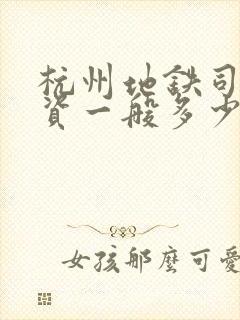 杭州地鉄司
資一般多少
女孩那麼可愛